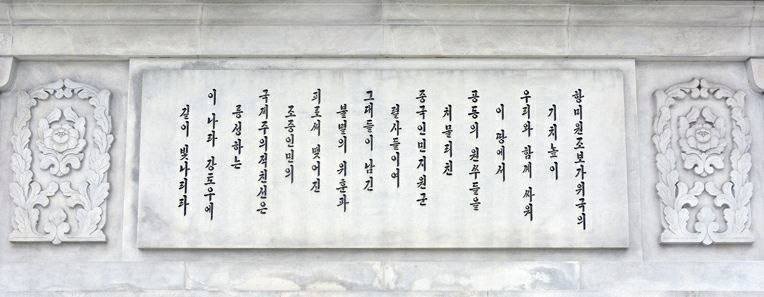 항미원조보가위국의
기치높이
우리와 함께 싸워
이 땅에서
공동의 원쑤들을
처물리친
중국인민지원군
렬사들이여
그대들이 남긴
불멸의 위훈과
피로써 맺어진
조중인민의
국제주의적친선은
륭성하는
이 나라 강토우에
길이 빛나리라